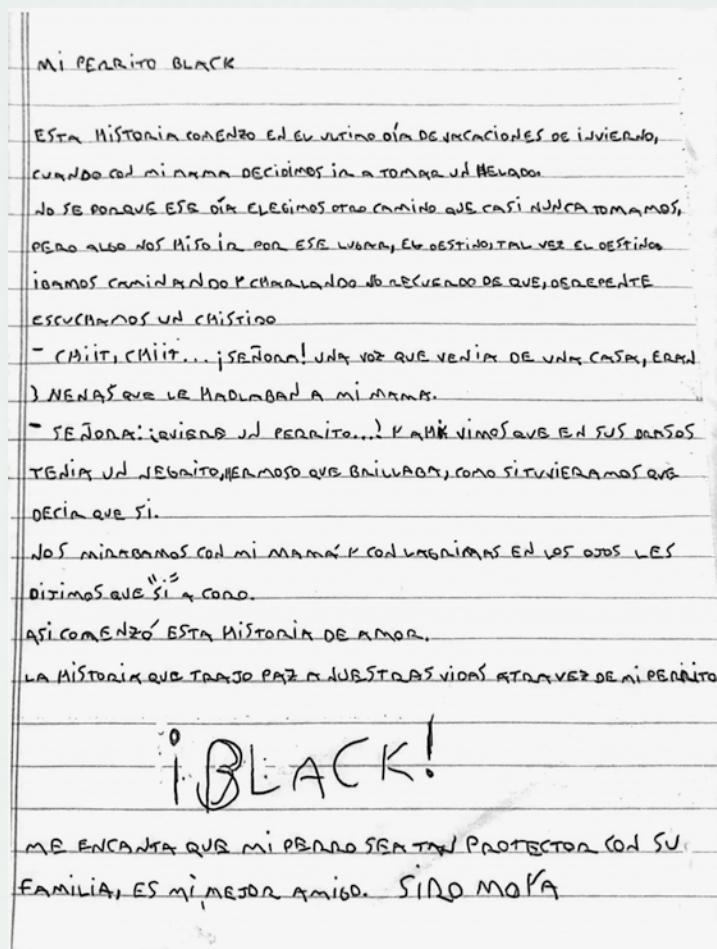 MI PERRITO BLACK
ESTA HISTORIA COMENZO EN EL ULTIMO DÍA DE VACACIONES DE INVIERNO,
CUANDO CON MI MAMA DECIDIMOS IR A TOMAR UN HELADO.
NO SE PORQUE ESE DÍA ELEGIMOS OTRO CAMINO QUE CASI NUNCA TOMAMOS,
PERO ALGO NOS HISO IR POR ESE LUGAR, EL DESTINO, TAL VEZ EL DESTINO.
IBAMOS CAMINANDO Y CHARLANDO NO RECUERDO DE QUE, DEREPENTE
ESCUCHAMOS UN CHISTIDO
- CHIIT, CHIIT... ¡SEÑORA! UNA VOZ QUE VENIA DE UNA CASA, ERAN
NENAS QUE LE HABLABAN A MI MAMA.
- SEÑORA: ¡QUIERE UN PERRITO...! Y AHI VIMOS QUE EN SUS BRASOS
TENIA UN NEGRITO, HERMOSO QUE BRILLABA, COMO SI TUVIERAMOS QUE
DECIR QUE SI.
NOS MIRABAMOS CON MI MAMÁ Y CON LAGRIMAS EN LOS OJOS LES
DIJIMOS QUE "SI" A CORO.
ASI COMENZÓ ESTA HISTORIA DE AMOR.
LA HISTORIA QUE TRAJO PAZ A NUESTRAS VIDAS ATRAVEZ DE MI PERRITO
¡BLACK!
ME ENCANTA QUE MI PERRO SEA TAN PROTECTOR CON SU
FAMILIA, ES MI MEJOR AMIGO. SIRO MOYA